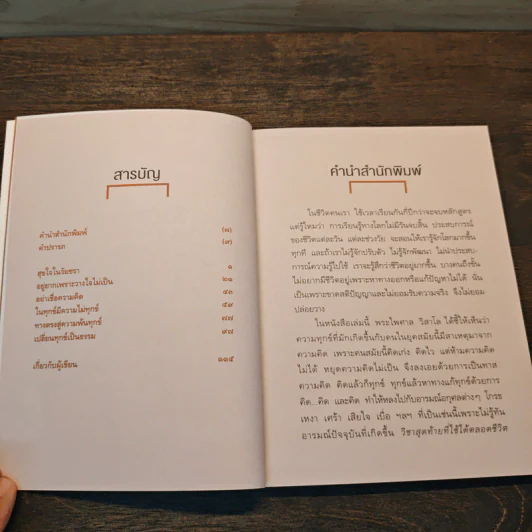 สารบัญ
คำนำสำนักพิมพ์ (๗)
คำปรารภ (๙)
สุขใจในวัยชรา ๑
อยู่ยากเพราะวางใจไม่เป็น ๒๑
อย่าเชื่อความคิด ๔๓
ในทุกข์มีความไม่ทุกข์ ๕๙
ทางตรงสู่ความพ้นทุกข์ ๗๗
เปลี่ยนทุกข์เป็นธรรม ๙๗
เกี่ยวกับผู้เขียน ๑๑๕
คำนำสำนักพิมพ์
ในชีวิตคนเรา ใช้เวลาเรียนกันกี่ปีกว่าจะจบหลักสูตร
แต่รู้ไหมว่า การเรียนรู้ทางโลกไม่มีวันจบสิ้น ประสบการณ์
ของชีวิตแต่ละวัน แต่ละช่วงวัย จะสอนให้เรารู้จักโลกมากขึ้น
ทุกที และถ้าเราไม่รู้จักปรับตัว ไม่รู้จักพัฒนา ไม่นำประสบ-
การณ์ความรู้ไปใช้ เราจะรู้สึกว่าชีวิตอยู่ยากขึ้น บางคนถึงขั้น
ไม่อยากมีชีวิตอยู่เพราะหาทางออกหรือแก้ปัญหาไม่ได้ นั่น
เป็นเพราะขาดสติปัญญาและไม่ยอมรับความจริง จึงไม่ยอม
ปล่อยวาง
ในหนังสือเล่มนี้ พระไพศาล วิสาโล ได้ชี้ให้เห็นว่า
ความทุกข์ที่มักเกิดขึ้นกับคนในยุคสมัยนี้มีสาเหตุมาจาก
ความคิด เพราะคนสมัยนี้คิดเก่ง คิดไว แต่ห้ามความคิด
ไม่ได้ หยุดความคิดไม่เป็น จึงลงเอยด้วยการเป็นทาส
ความคิด คิดแล้วก็ทุกข์ ทุกข์แล้วหาทางแก้ทุกข์ด้วยการ
คิด..คิด และคิด ทำให้หลงไปกับอารมณ์อกุศลต่างๆ โกรธ
เหงา เศร้า เสียใจ เบื่อ ฯลฯ ที่เป็นเช่นนี้เพราะไม่รู้ทัน
อารมณ์ปัจจุบันที่เกิดขึ้น วิชาสุดท้ายที่ใช้ได้ตลอดชีวิต